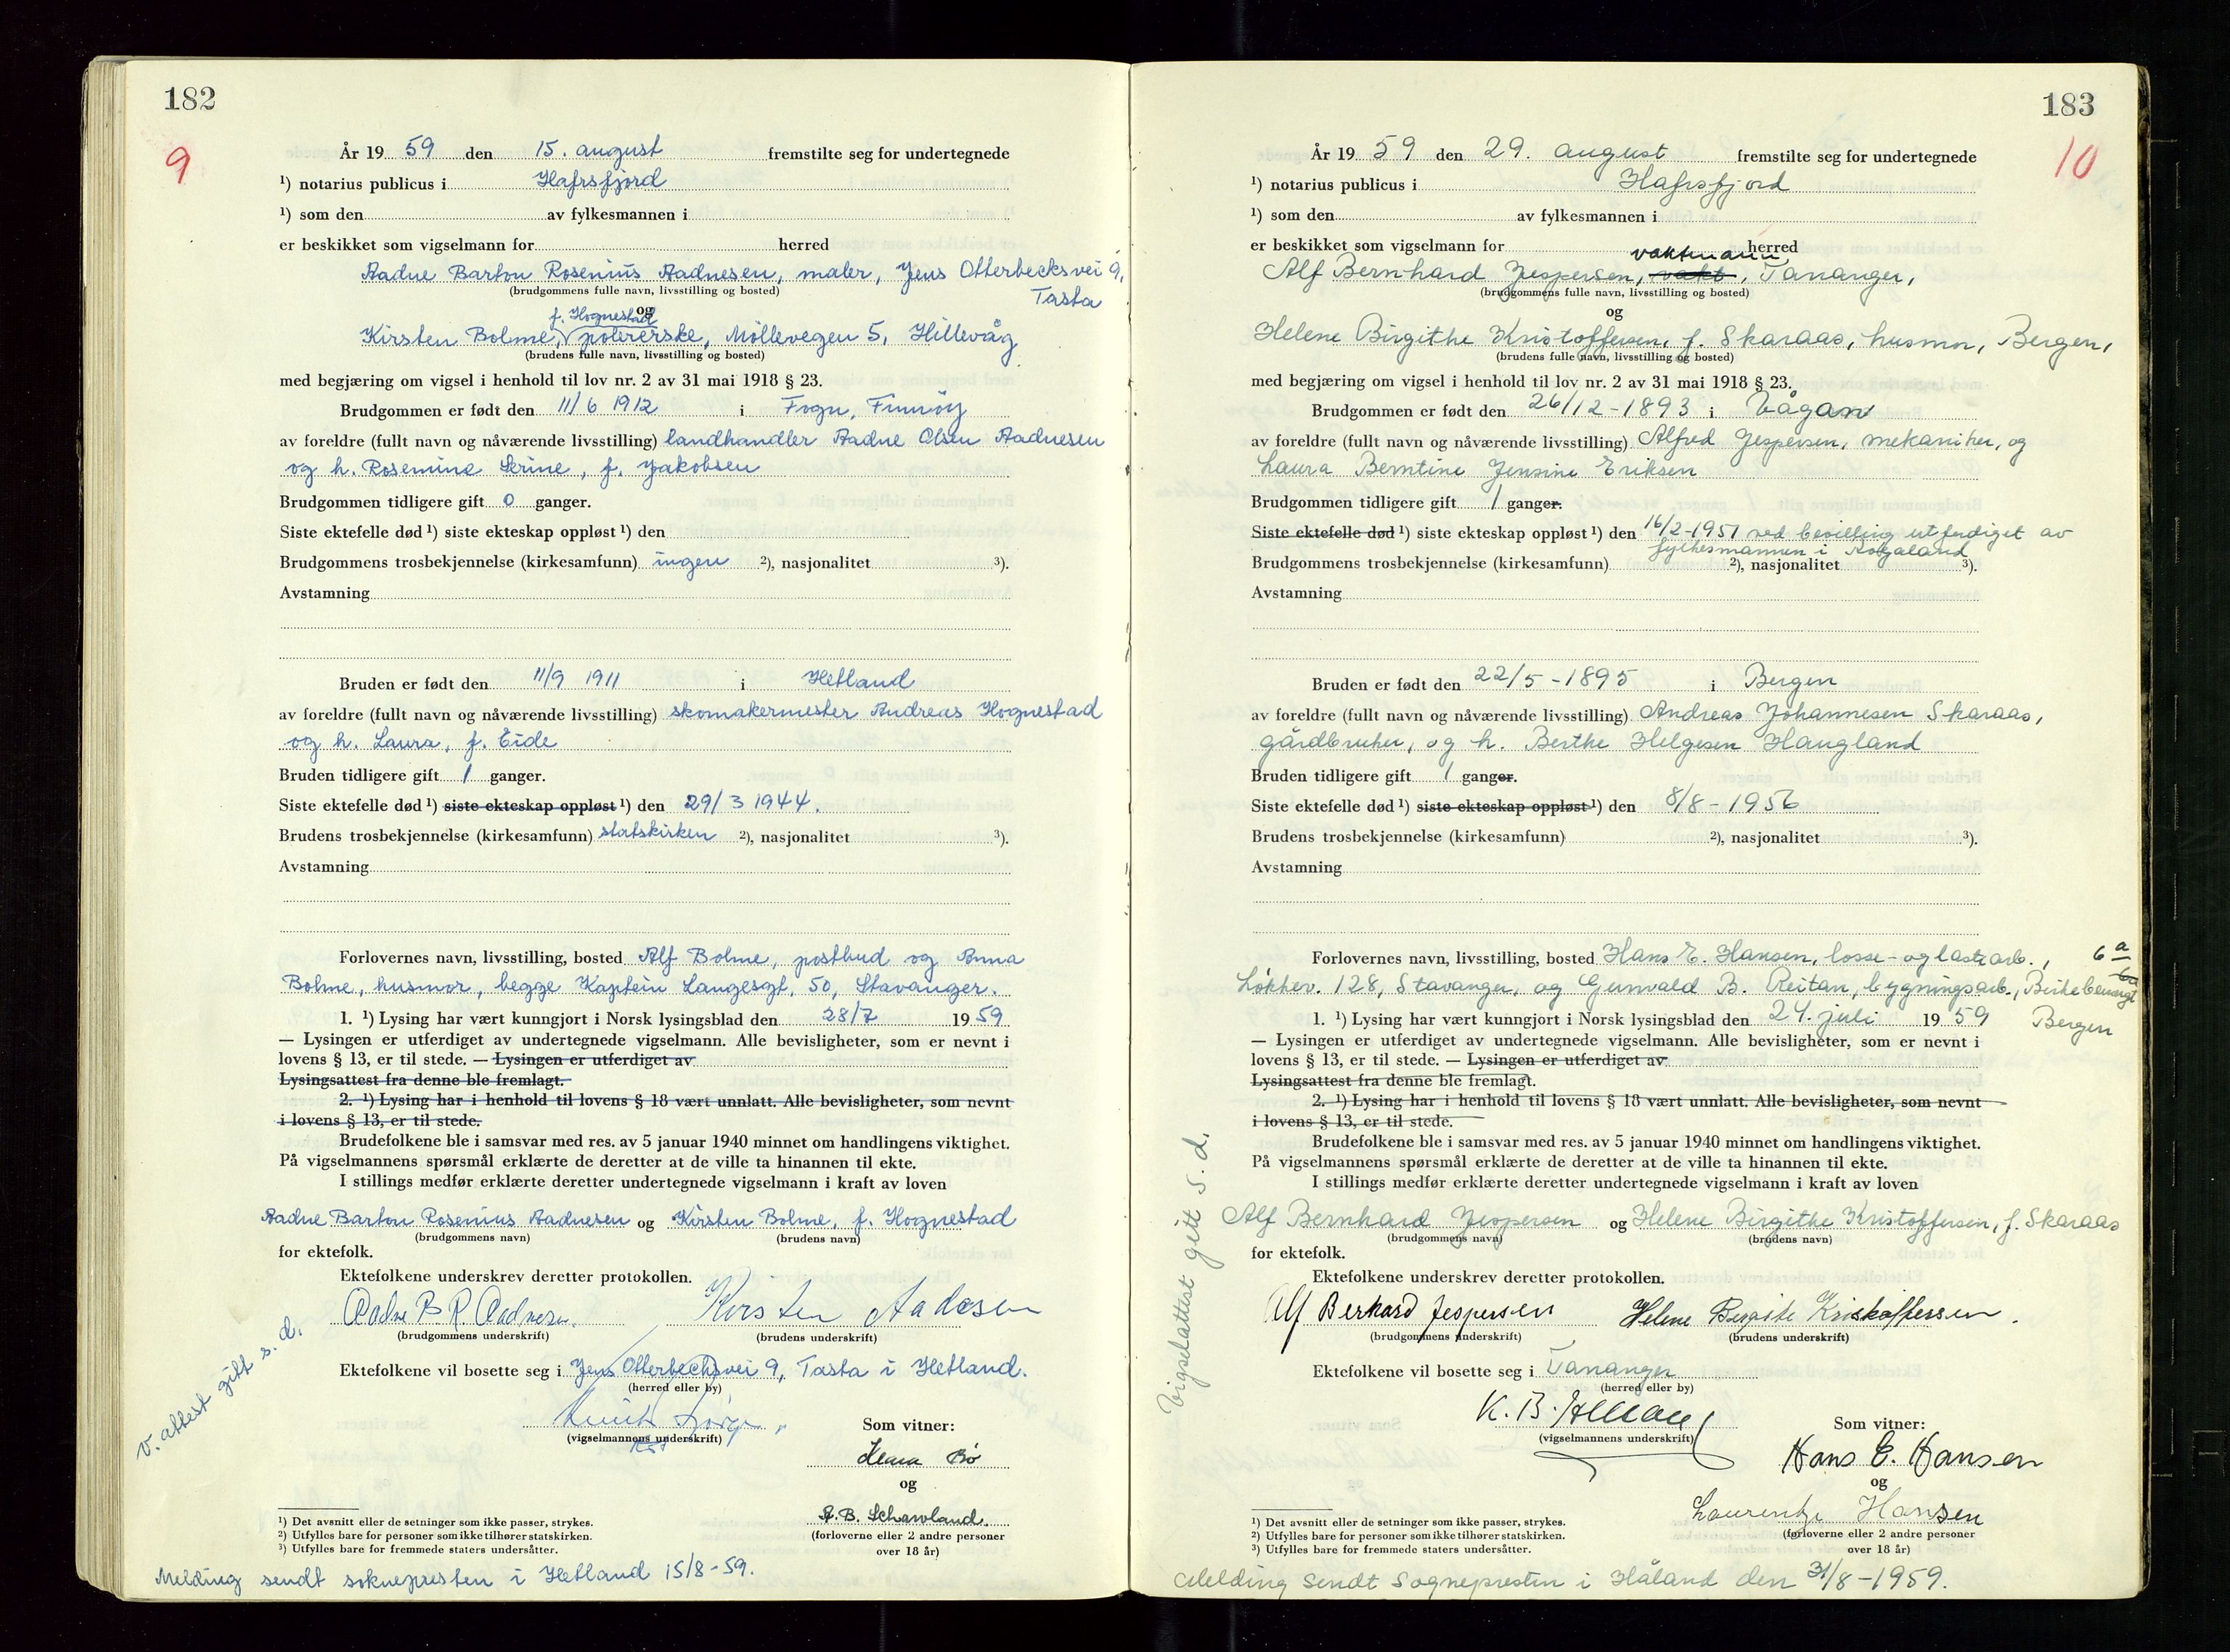 182
9
År 19 59 den 15. august fremstilte seg for undertegnede
¹) notarius publicus i Hafrsfjord
¹) som den av fylkesmannen i
er beskikket som vigselmann for herred
Aadne Barton Rosenius Aadnesen, maler, Jens Otterbecksvei 9,
(brudgommens fulle navn, livsstilling og bosted)
Tasta
og
f. Hognestad
Kirsten Bolme, polererske, Möllevegen 5, Hillevåg
(brudens fulle navn, livsstilling og bosted)
med begjæring om vigsel i henhold til lov nr. 2 av 31 mai 1918 § 23.
Brudgommen er født den 11/6 1912 i Fogn, Finnöy
av foreldre (fullt navn og nåværende livsstilling) landhandler Aadne Olsen Aadnesen
og h. Rosemine Serine, f. Jakobsen
Brudgommen tidligere gift 0 ganger.
Siste ektefelle død ¹) siste ekteskap oppløst ¹) den
Brudgommens trosbekjennelse (kirkesamfunn) ingen ²), nasjonalitet ³).
Avstamning
Bruden er født den 11/9 1911 i Hetland
av foreldre (fullt navn og nåværende livsstilling) skomakermester Andreas Hognestad
og h. Laura, f. Eide
Bruden tidligere gift 1 ganger.
Siste ektefelle død ¹) siste ekteskap oppløst ¹) den 29/3 1944.
Brudens trosbekjennelse (kirkesamfunn) statskirken ²), nasjonalitet ³).
Avstamning
Forlovernes navn, livsstilling, bosted Alf Bolme, postbud og Anna
Bolme, husmor, begge Kaptein Langesgt, 50, Stavanger.
1. ¹) Lysing har vært kunngjort i Norsk lysingsblad den 28/7 19 59
— Lysingen er utferdiget av undertegnede vigselmann. Alle bevisligheter, som er nevnt i
lovens § 13, er til stede. — Lysingen er utferdiget av
Lysingsattest fra denne ble fremlagt.
2. ¹) Lysing har i henhold til lovens § 18 vært unnlatt. Alle bevisligheter, som nevnt
i lovens § 13, er til stede.
Brudefolkene ble i samsvar med res. av 5 januar 1940 minnet om handlingens viktighet.
På vigselmannens spørsmål erklærte de deretter at de ville ta hinannen til ekte.
I stillings medfør erklærte deretter undertegnede vigselmann i kraft av loven
Aadne Barton Rosenius Aadnesen og Kirsten Bolme, f. Hognestad
(brudgommens navn) (brudens navn)
for ektefolk.
Ektefolkene underskrev deretter protokollen.
Aadne B. R. Aadnesen. Kirsten Aadesen
(brudgommens underskrift) (brudens underskrift)
Ektefolkene vil bosette seg i Jens Otterbecksvei 9, Tasta i Hetland.
(herred eller by)
v. attest gitt s. d.
(vigselmannens underskrift)
Som vitner:
Bö
og
A. B. Schawland.
(forloverne eller 2 andre personer
over 18 år)
¹) Det avsnitt eller de setninger som ikke passer, strykes.
²) Utfylles bare for personer som ikke tilhører statskirken.
³) Utfylles bare for fremmede staters undersåtter.
Melding sendt soknepresten i Hetland 15/8-59.
183
10
År 19 59 den 29. august fremstilte seg for undertegnede
¹) notarius publicus i Hafrsfjord
¹) som den av fylkesmannen i
er beskikket som vigselmann for herred
vaktmann,
Alf Bernhard Jespersen, vakt, Tananger,
(brudgommens fulle navn, livsstilling og bosted)
og
Helene Birgithe Kristoffersen, f. Skaraas, husmor, Bergen,
(brudens fulle navn, livsstilling og bosted)
med begjæring om vigsel i henhold til lov nr. 2 av 31 mai 1918 § 23.
Brudgommen er født den 26/12-1893 i Vågan
av foreldre (fullt navn og nåværende livsstilling) Alfred Jespersen, mekaniker, og
Laura Berntine Jensine Eriksen
Brudgommen tidligere gift 1 ganger.
Siste ektefelle død ¹) siste ekteskap oppløst ¹) den 16/2-1951 ved bevilling utferdiget av
fylkesmannen i Rogaland
Brudgommens trosbekjennelse (kirkesamfunn) ²), nasjonalitet ³).
Avstamning
Bruden er født den 22/5-1895 i Bergen
av foreldre (fullt navn og nåværende livsstilling) Andreas Johannesen Skaraas,
gårdbruker, og h. Berthe Helgesen Haugland
Bruden tidligere gift 1 ganger.
Siste ektefelle død ¹) siste ekteskap oppløst ¹) den 8/8-1956
Brudens trosbekjennelse (kirkesamfunn) ²), nasjonalitet ³).
Avstamning
Forlovernes navn, livsstilling, bosted Hans E. Hansen, losse- og lastearb., 6a
Løkkev. 128, Stavanger, og Gunvald B. Reitan, bygningsarb., Birkebeinergt
1. ¹) Lysing har vært kunngjort i Norsk lysingsblad den 24. juli 19 59 Bergen
— Lysingen er utferdiget av undertegnede vigselmann. Alle bevisligheter, som er nevnt i
lovens § 13, er til stede. — Lysingen er utferdiget av
Lysingsattest fra denne ble fremlagt.
2. ¹) Lysing har i henhold til lovens § 18 vært unnlatt. Alle bevisligheter, som nevnt
i lovens § 13, er til stede.
Brudefolkene ble i samsvar med res. av 5 januar 1940 minnet om handlingens viktighet.
På vigselmannens spørsmål erklærte de deretter at de ville ta hinannen til ekte.
I stillings medfør erklærte deretter undertegnede vigselmann i kraft av loven
Alf Bernhard Jespersen og Helene Birgithe Kristoffersen, f. Skaraas
(brudgommens navn) (brudens navn)
for ektefolk.
Ektefolkene underskrev deretter protokollen.
Alf Berhard Jespersen Helene Birgite Kristoffersen.
(brudgommens underskrift) (brudens underskrift)
Ektefolkene vil bosette seg i Tananger
(herred eller by)
Vigselattest gitt s. d.
K. B.
(vigselmannens underskrift)
Som vitner:
Hans E. Hansen
og
Laurentze Hansen
(forloverne eller 2 andre personer
over 18 år)
¹) Det avsnitt eller de setninger som ikke passer, strykes.
²) Utfylles bare for personer som ikke tilhører statskirken.
³) Utfylles bare for fremmede staters undersåtter.
Melding sendt Sognepresten i Håland den 31/8-1959.